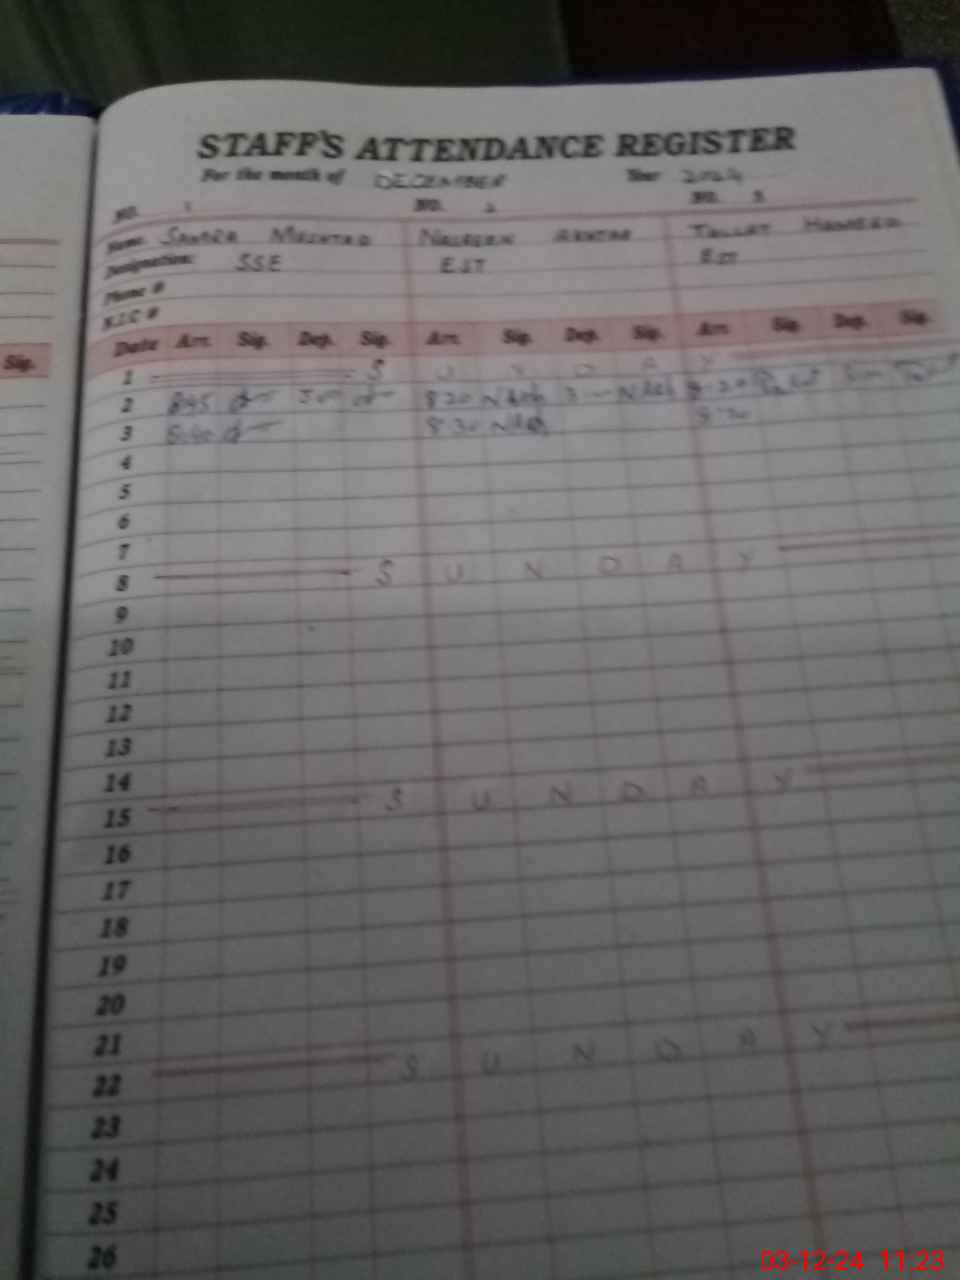 STAFF'S ATTENDANCE REGISTER
For the month of DECEMBER Year 2024
NO. 1 NO. 2 NO. 3
Name: MUSHTAQ AKHTAR HAMEED
Designation: SSE EST EST
Phone #
N.I.C #
Sig. Date Arr. Sig. Dep. Sig. Arr. Sig. Dep. Sig. Arr. Sig. Dep. Sig.
1 S U N D A Y
2 8:45 8 20
3 8:40 8 30 8 30
4
5
6
7
8 S U N D A Y
9
10
11
12
13
14
15 S U N D A Y
16
17
18
19
20
21
22 S U N D A Y
23
24
25
26
03-12-24 11:23